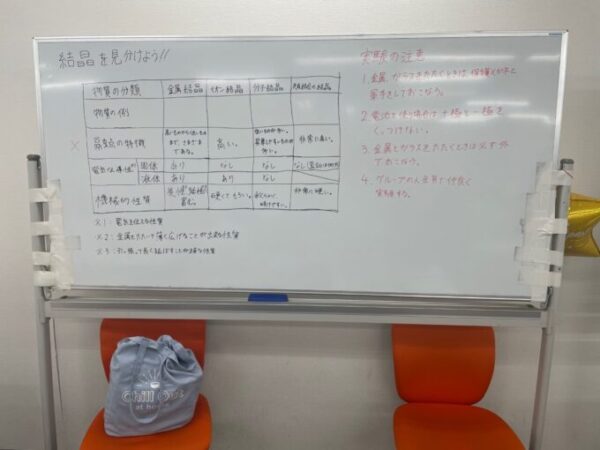 結晶を見分けよう!!
物質の分類 金属結晶 イオン結晶 分子結晶 共有結合の結晶
物質の例
融点の特徴 高いものから低いものまで、さまざまである。 高い。 非常に高い。
電気伝導性 固体 あり なし なし なし
液体 あり あり なし
機械的性質 展性・延性 富む。 硬くてもろい。 非常に硬い。
※1：電気を伝える性質
※2：金属をたたいて薄く広げることが出来る性質
※3：引っ張って長く延ばすことが出来る性質
実験の注意
1. 金属、ガラスをたたくときは保護メガネと軍手をしておこなう。
2. 電池を使う場合は＋極と－極をくっつけない。
3. 金属とガラスをたたくときは必ず外でおこなう。
4. グループの人全員で仲良く
実験する。
Chill Out
at home